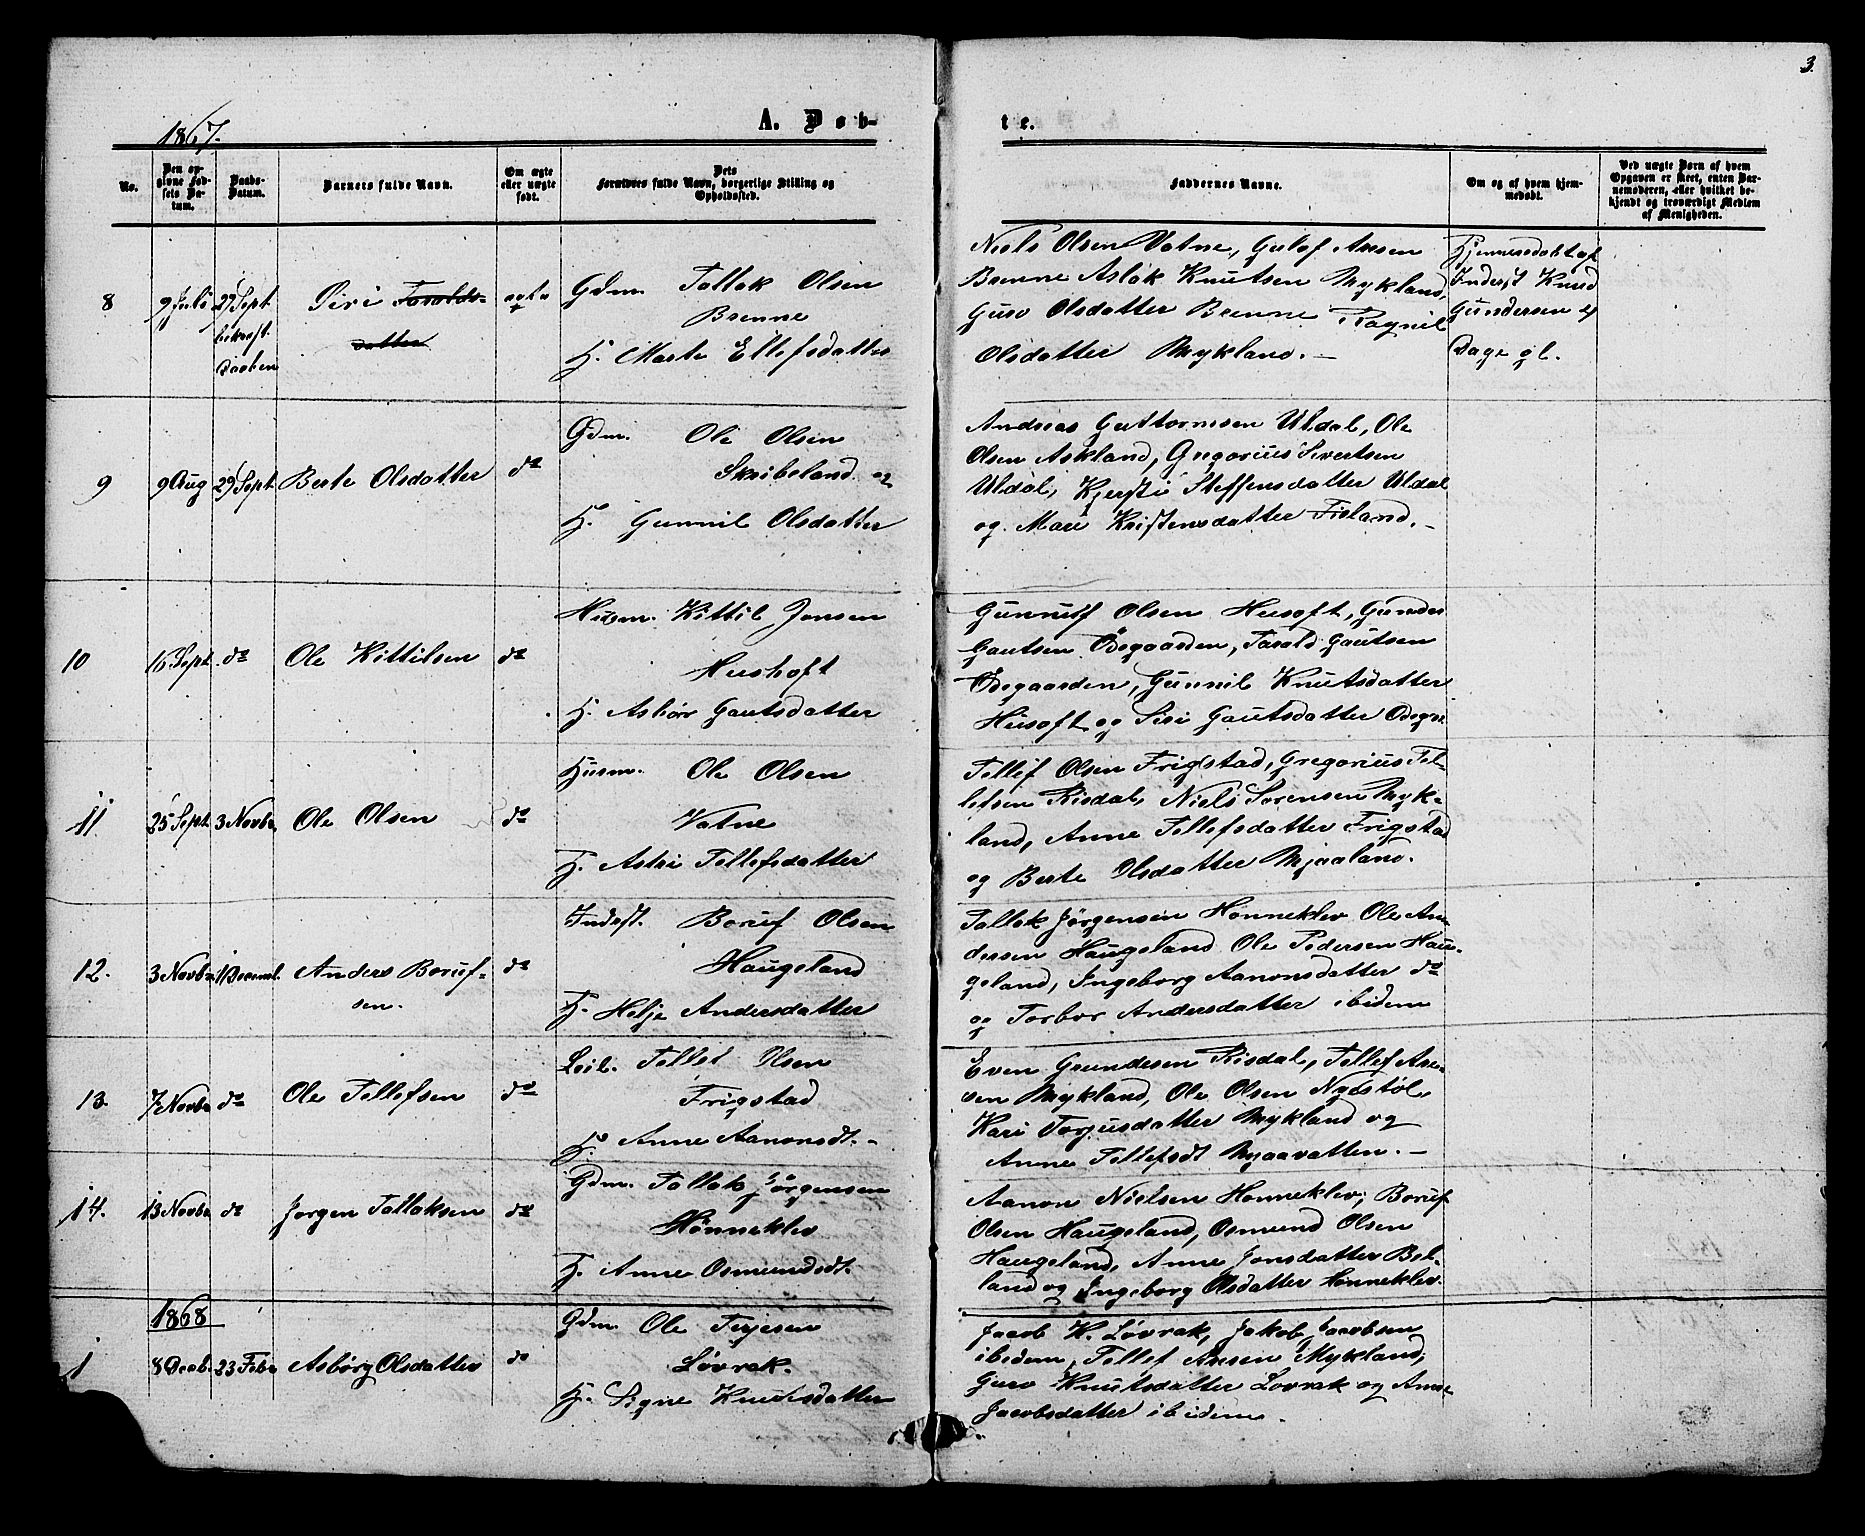 3.
1867.
A. Døb-
te.
No.
Den op-
givne Fød-
sels Da-
tum.
Daabs-
Datum.
Barnets fulde Navn.
Om ægte
eller uægte
født.
Dets
Forældres fulde Navn, borgerlige Stilling og
Opholdssted.
Faddernes Navne.
Om og af hvem hjem-
medøbt.
Ved uægte Børn af hvem
Opgaven er skeet, enten Bar-
nemoderen, eller hvilket be-
kjendt og troværdigt Medlem
af Menigheden.
8
9 Juli
29 Sept.
bekræft.
Daaben
Siri Taralds-
datter
ægte
Gdm. Tallak Olsen
Brenne
H. Marte Ellefsdatter
Niels Olsen Vatne, Gulof Aasen
Brenne Aslak Knutsen Mykland,
Guro Olsdatter Brenne Ragnil
Olsdatter Mykland. –
Hjemmedøbt af
Inderst Knud
Gundersen
Dage gl.
9
9 Aug
29 Sept.
Berte Olsdatter
do
Gdm. Ole Olsen
Skribeland og
H. Gunnil Olsdatter
Andreas Guttormsen Uldal, Ole
Olsen Askland, Gregorius Sivertsen
Uldal, Kjersti Steffensdatter Uldal
og Mari Kristensdatter Fisland. –
10
16 Sept.
do
Ole Kittilsen
do
Husm. Kittil Jensen
Hushoft
H. Asbør Gautsdatter
Gunnuf Olsen Husoft, Gunder
Gautsen Ødegaarden, Tarald Gautsen
Ødegaarden, Gunnil Knutsdatter
Husoft og Siri Gautsdatter Ødegr
11
25 Sept.
3 Novbr
Ole Olsen
do
Husm. Ole Olsen
Vatne
H. Astri Tellefsdatter
Tellef Olsen Frigstad, Gregorius Tel-
lefsen Risdal, Niels Sørensen Myk-
land, Anne Tellefsdatter Frigstad
og Berte Olsdatter Mjaaland.
12.
3 Novbr
1 Decembr.
Anders Boruf-
sen.
do
Inderst. Boruf Olsen
Haugeland
H. Helje Andersdatter
Tallak Jørgensen Hønneklev Ole An-
dersen Haugeland Ole Pedersen Hau-
geland, Ingeborg Aanonsdatter do
og Torbor Andersdatter ibidem
13.
7 Novbr
do
Ole Tellefsen
do
Leil. Tellef Olsen
Frigstad
H. Anne Aanonsdt. –
Even Gundersen Risdal, Tellef Aa-
sen Mykland, Ole Olsen Nystøl,
Kari Torjusdatter Mykland og
Anne Tellefsdt Mjaavatten. –
14.
13 Novbr
do
Jørgen Tallaksen
do
Gdm. Tallak Jørgensen
Hønneklev
H. Anne Osmundsdt.
Aanon Nielsen Hønneklev, Boruf
Olsen Haugeland, Osmund Olsen
Haugeland, Anne Jonsdatter Bel-
land og Ingeborg Olsdatter Hønneklev.
1868
1
8 Decbr
23 Febr
Asbørg Olsdatter
do
Gdm. Ole Terjesen
Løvrak.
H. Signe Knudsdatter
Jacob K. Løvrak, Jakob Jacobsen
ibidem, Tellef Aasen Mykland,
Guro Knutsdatter Løvrak og Anne
Jacobsdatter ibidem.